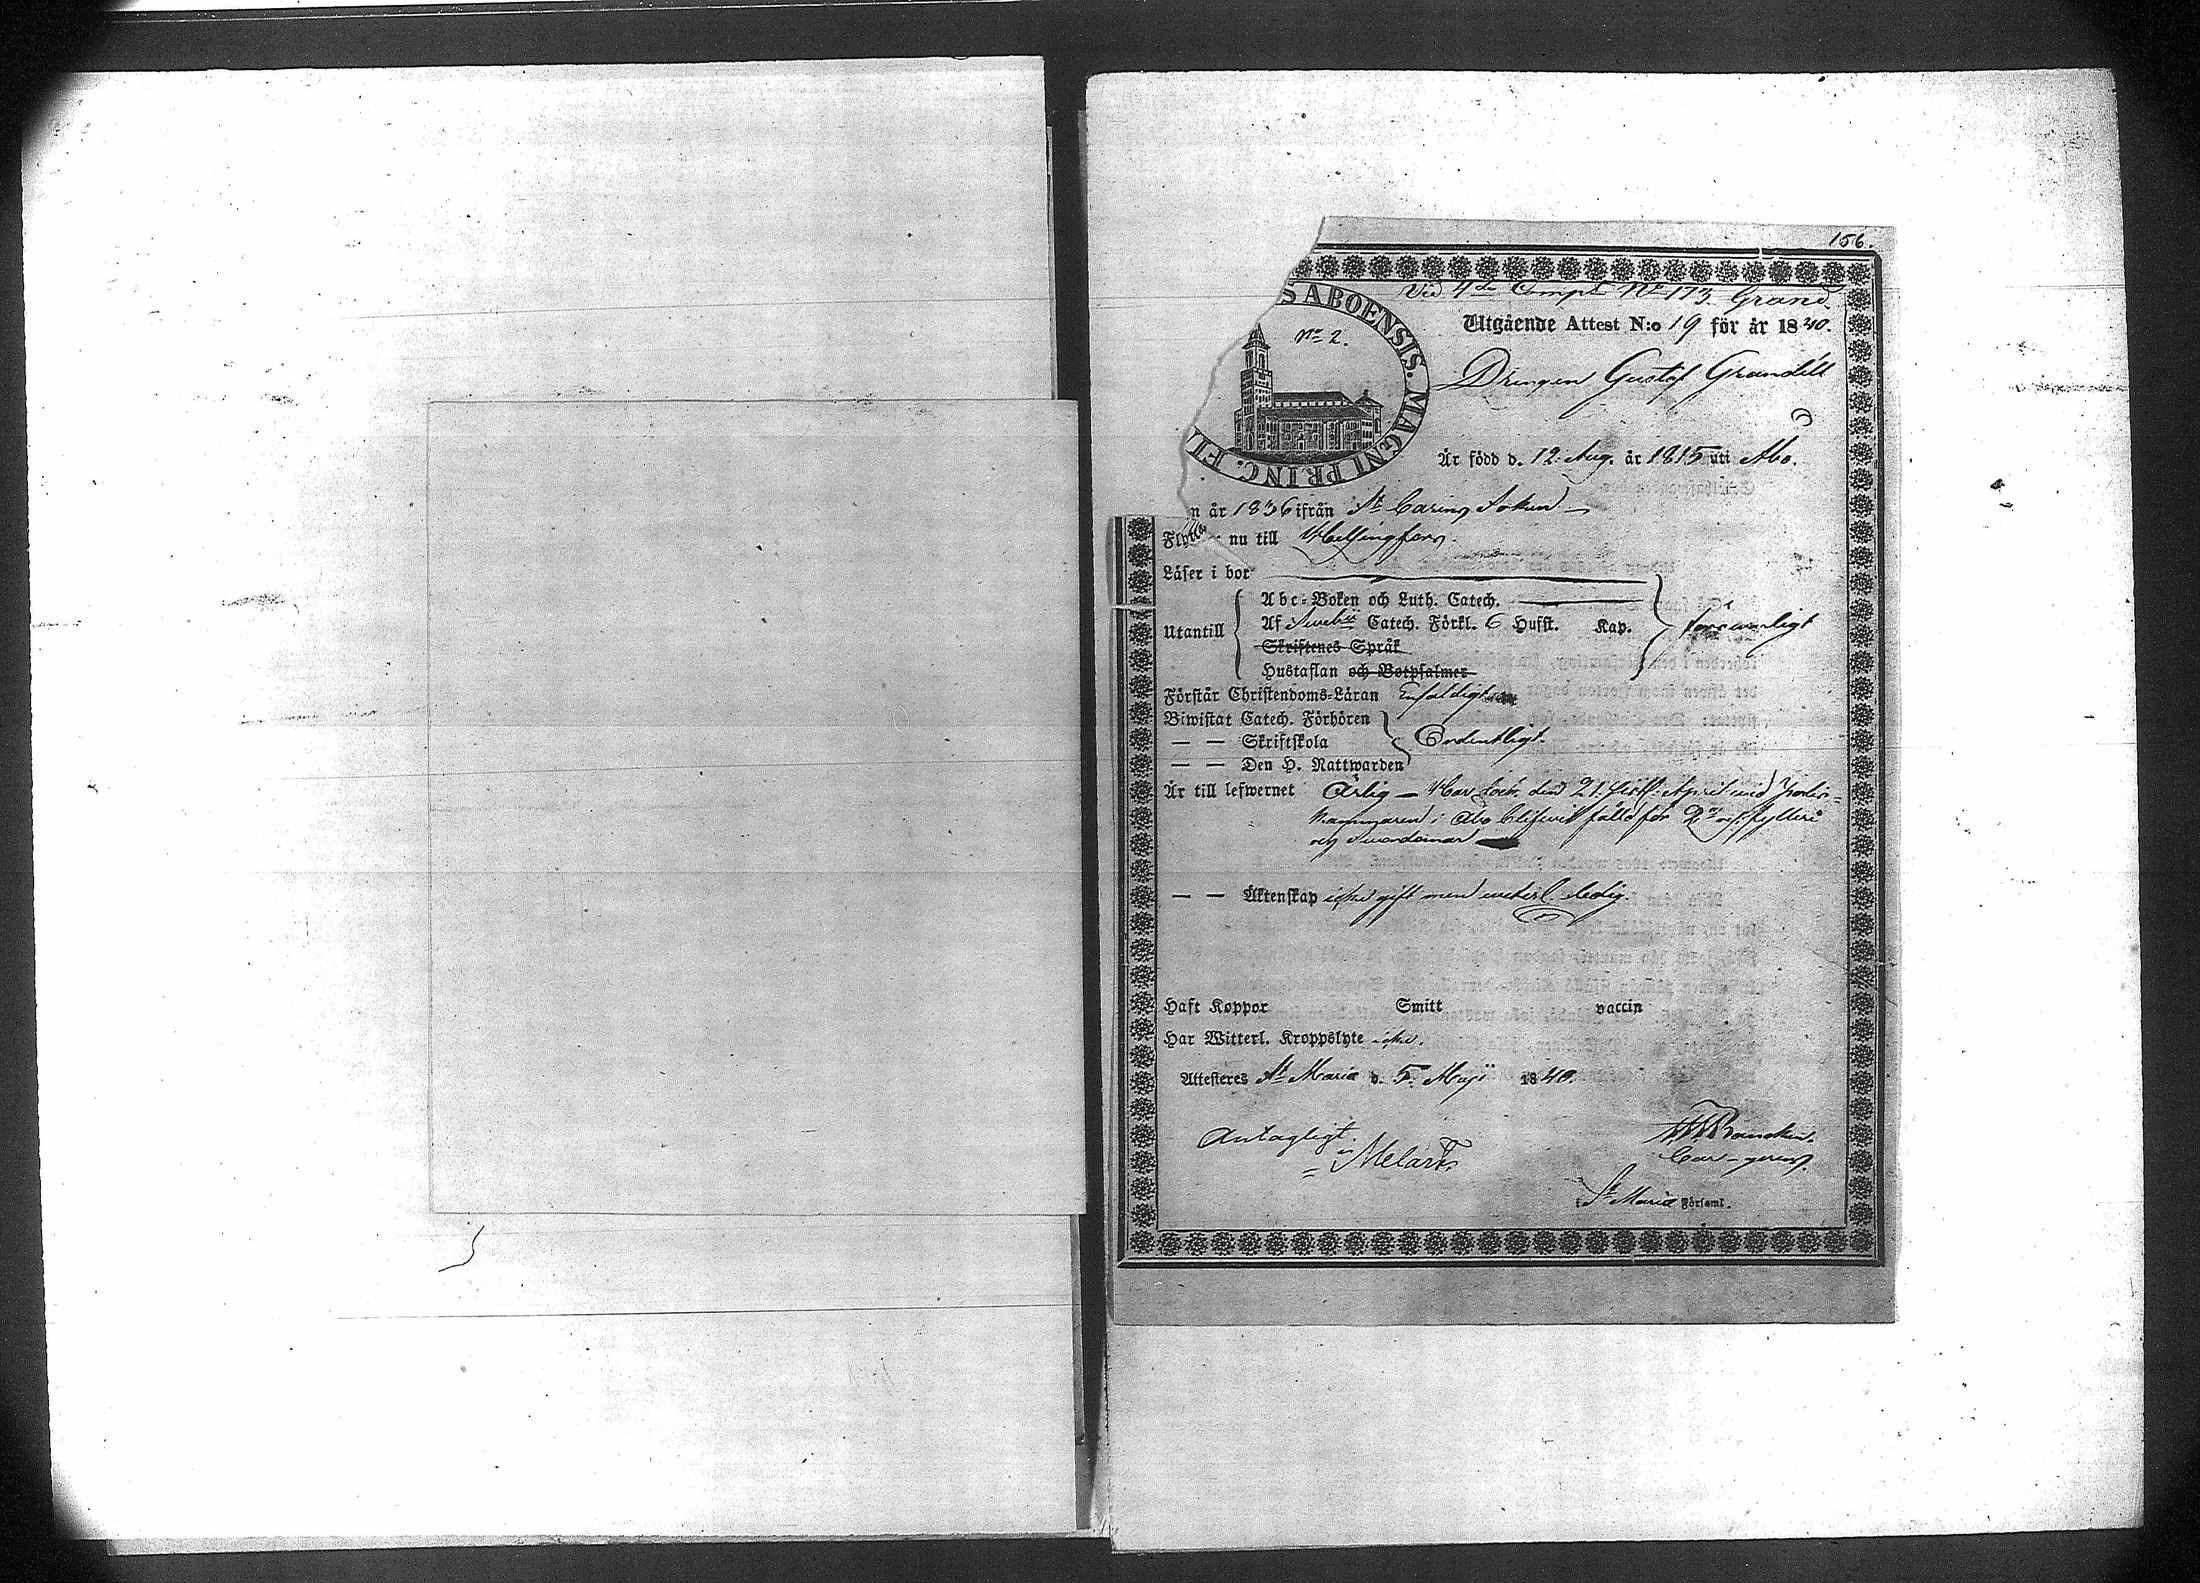 156.
Vid 4de Comp: No 173. Grand
S ABOENSIS. MAGNI PRINC. FI
No 2.
Utgående Attest N:o 19 för år 1840.
Drengen Gustaf Grandell
Är född d. 12. Aug. år 1815 uti Åbo.
n år 1836 ifrån St Carins Soken
Flyttar nu till Helsingfors.
Läser i bok
Utantill
Abc-Boken och Luth. Catech.
Af Svebii Catech. Förkl. 6 Hufst. Kap.
försvarligt
Skriftenes Språk
Hustaflan och Botpsalmer
Förstår Christendoms-Läran Enfaldigt
Biwistat Catech. Förhören
— — Skriftskola
Ordentligt.
— — Den H. Nattwarden
Är till lefwernet Ärlig — Har den 21. sistl. April vid
Kammaren i Åbo blifwit fälld för 2a res. fylleri
och svordomar
— — Äktenskap icke gift men ledig.
Haft Koppor Smitt vaccin
Har Witterl. Kroppslyte icke.
Attesteres St Maria d. 5. Maji 1840.
Antagligt.
Melart
St Maria Församl.